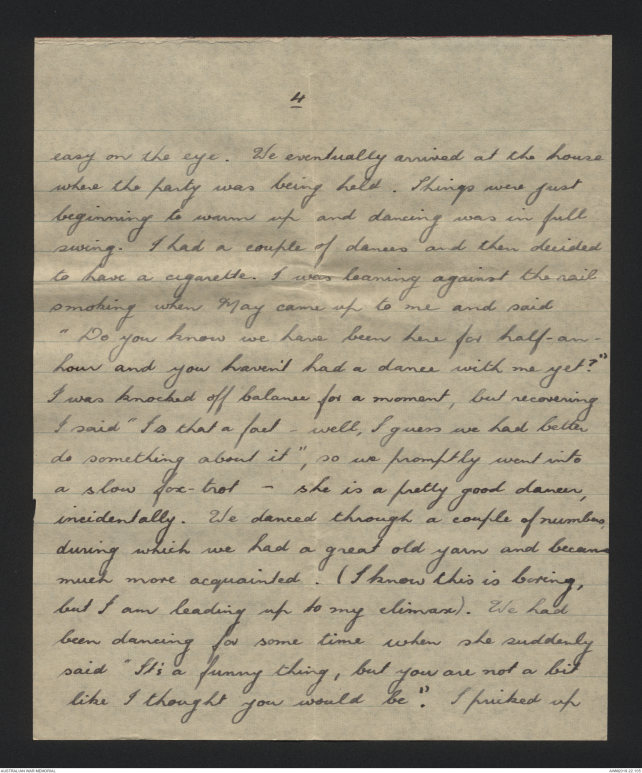 4
easy on the eye. We eventually arrived at the house
where the party was being held. Things were just
beginning to warm up and dancing was in full
swing. I had a couple of dances and then decided
to have a cigarette. I was leaning against the rail
smoking when May came up to me and said
"Do you know we have been here for half-an-
hour and you haven't had a dance with me yet?"
I was knocked off balance for a moment, but recovering
I said "Is that a fact - well, I guess we had better
do something about it", so we promptly went into
a slow fox-trot - she is a pretty good dancer,
incidentally. We danced through a couple of numbers,
during which we had a great old yarn and became
much more acquainted. (I know this is boring,
but I am leading up to my climax). We had
been dancing for some time when she suddenly
said "It's a funny thing, but you are not a bit
like I thought you would be". I pricked up
AUSTRALIAN WAR MEMORIAL